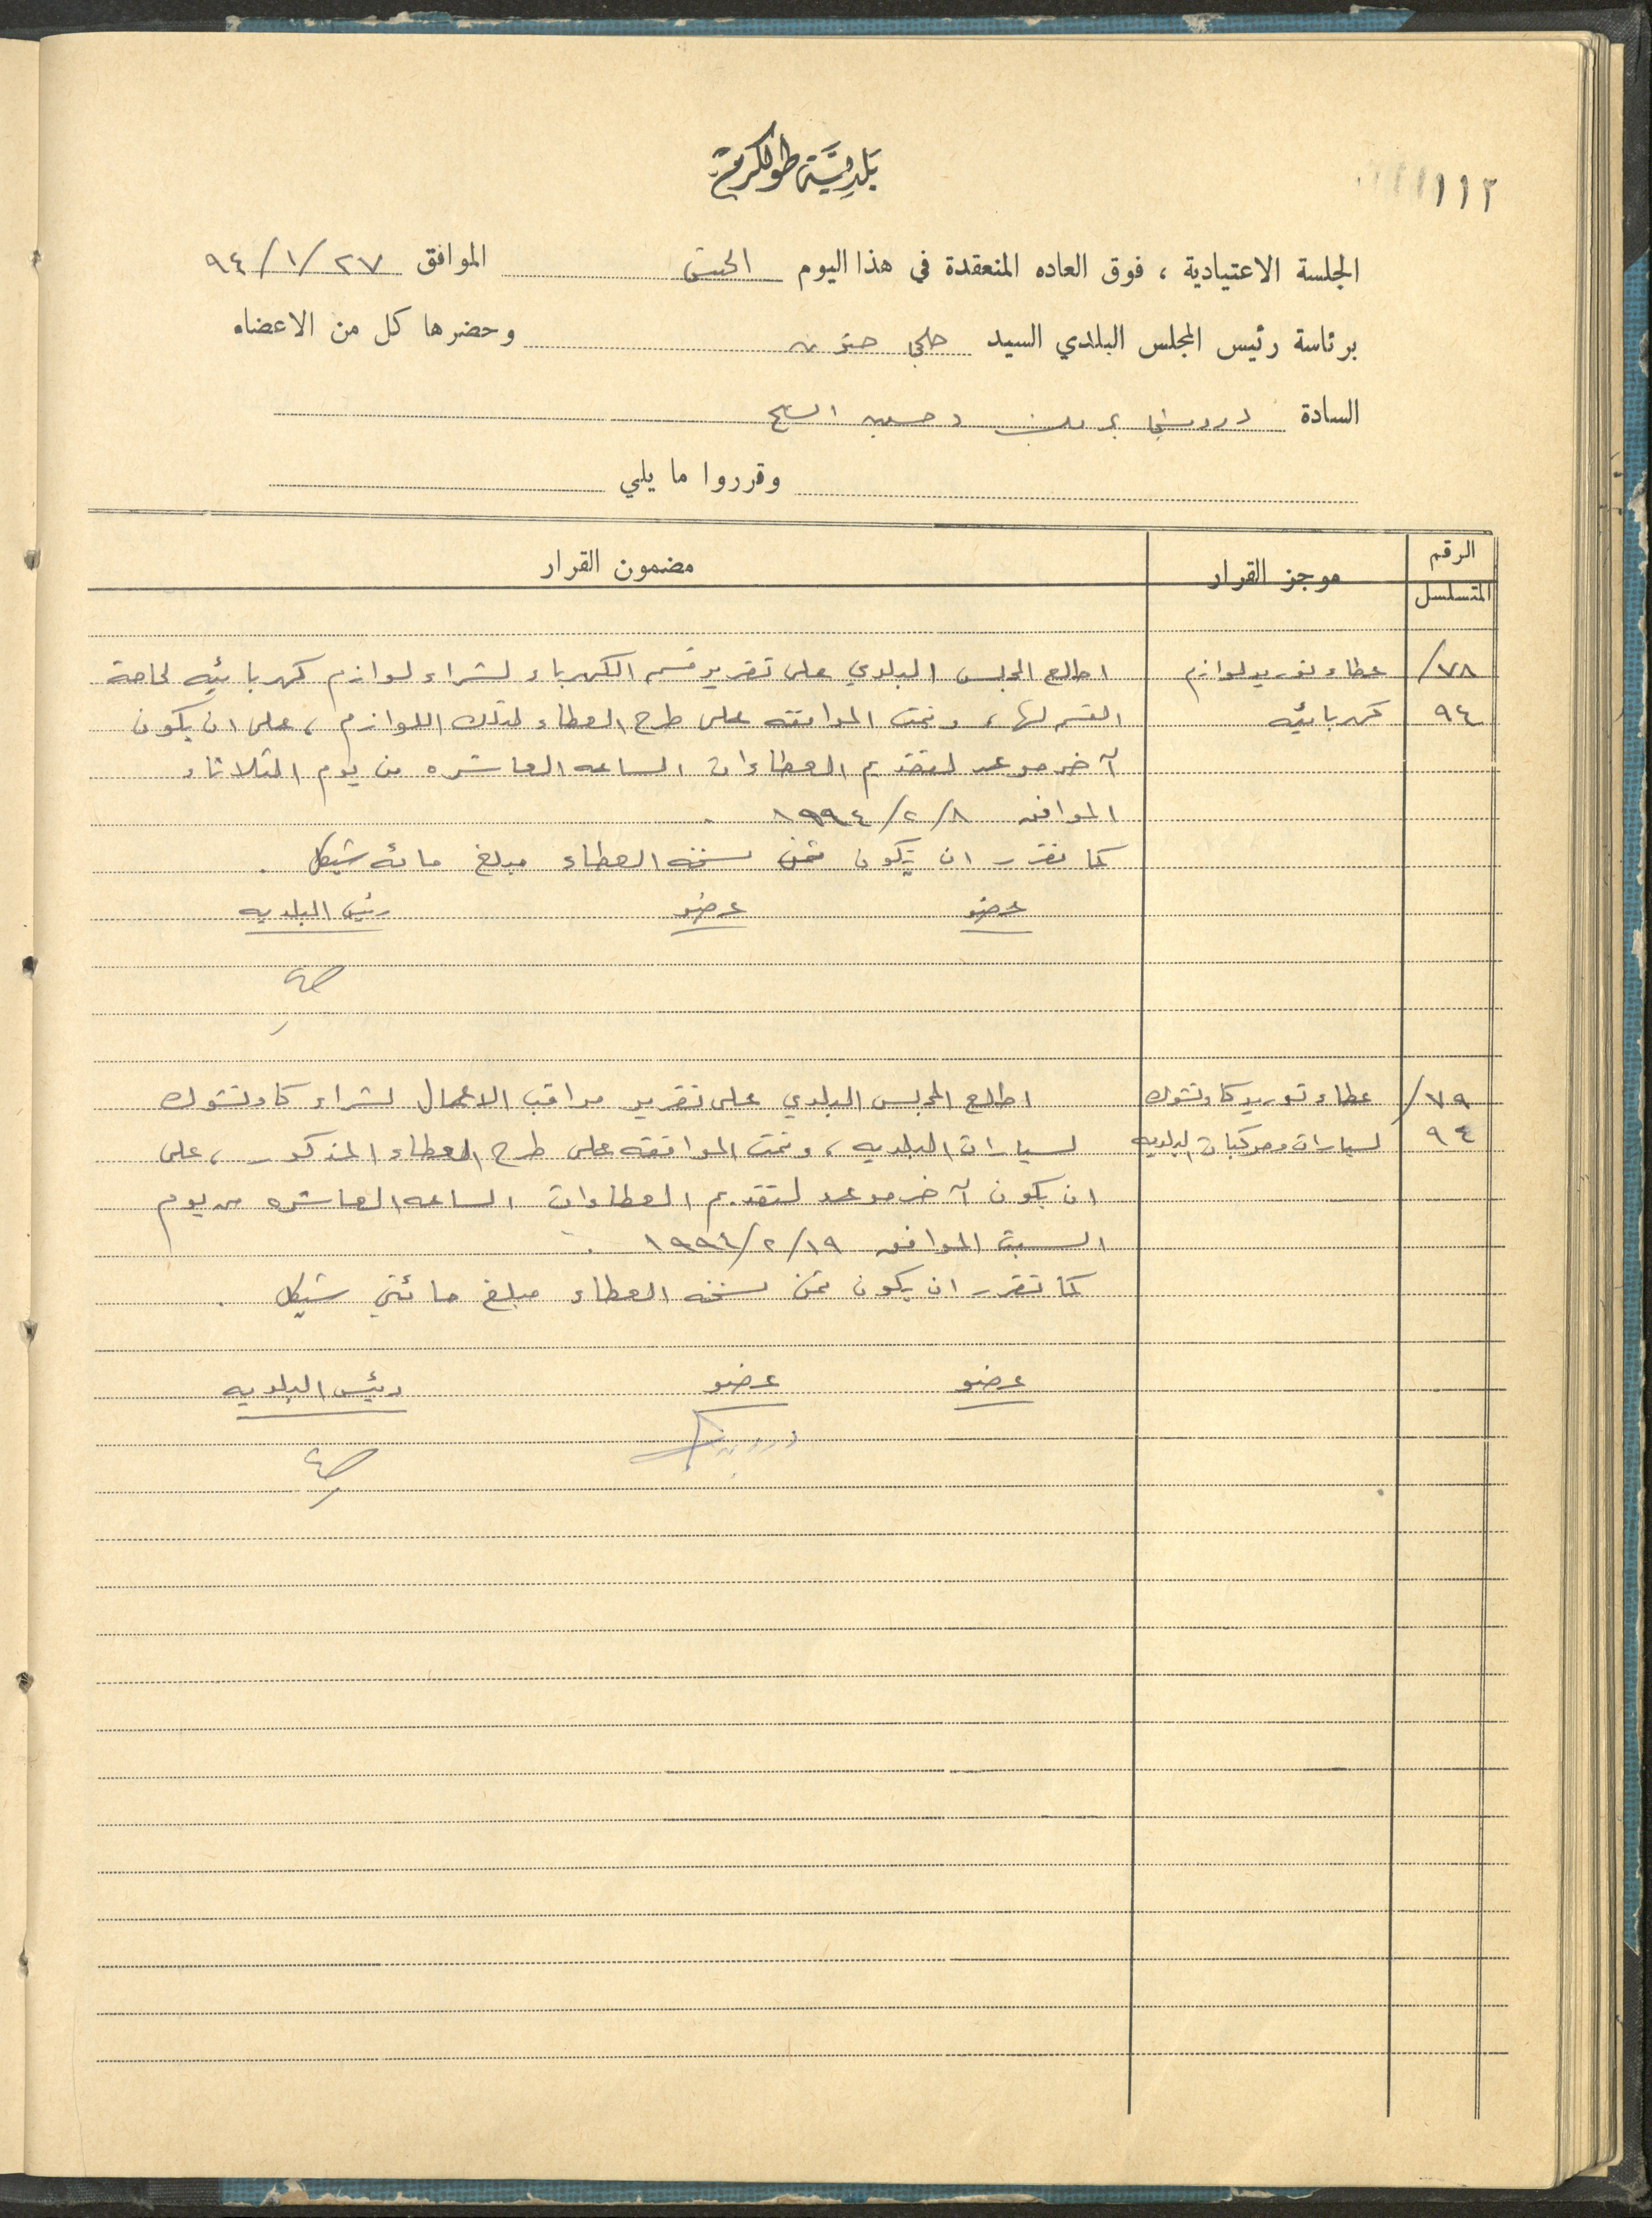 بلدية طولكرم
١١٢
الجلسة الاعتيادية ، فوق العاده المنعقدة في هذا اليوم الخميس الموافق ٩٤/١/٢٧
برئاسة رئيس المجلس البلدي السيد حلمي حنون وحضرها كل من الاعضاء
السادة
وقرروا ما يلي
الرقم المتسلسل موجز القرار مضمون القرار
٧٨/ عطاء توريد لوازم اطلع المجلس البلدي على تقرير قسم الكهرباء لشراء لوازم كهربائيه لحاجة
٩٤ كهربائيه القسم لها ، وتمت الموافقه على طرح العطاء لتلك اللوازم ، على ان يكون
آخر موعد لتقديم العطاءات الساعه العاشره من يوم الثلاثاء
الموافق ١٩٩٤/٢/٨ .
كما تقرر ان يكون ثمن نسخه العطاء مبلغ مائه شيكل .
عضو عضو رئيس البلديه
٧٩/ عطاء توريد كاوتشوك اطلع المجلس البلدي على تقرير مراقب الاعمال لشراء كاوتشوك
٩٤ لسيارات ومركبات البلديه لسيارات البلديه ، وتمت الموافقه على طرح العطاء المذكور ، على
ان يكون آخر موعد لتقديم العطاوات الساعه العاشره من يوم
السبت الموافق ١٩٩٤/٢/١٩ .
كما تقرر ان يكون ثمن نسخه العطاء مبلغ مائتي شيكل .
عضو عضو رئيس البلديه